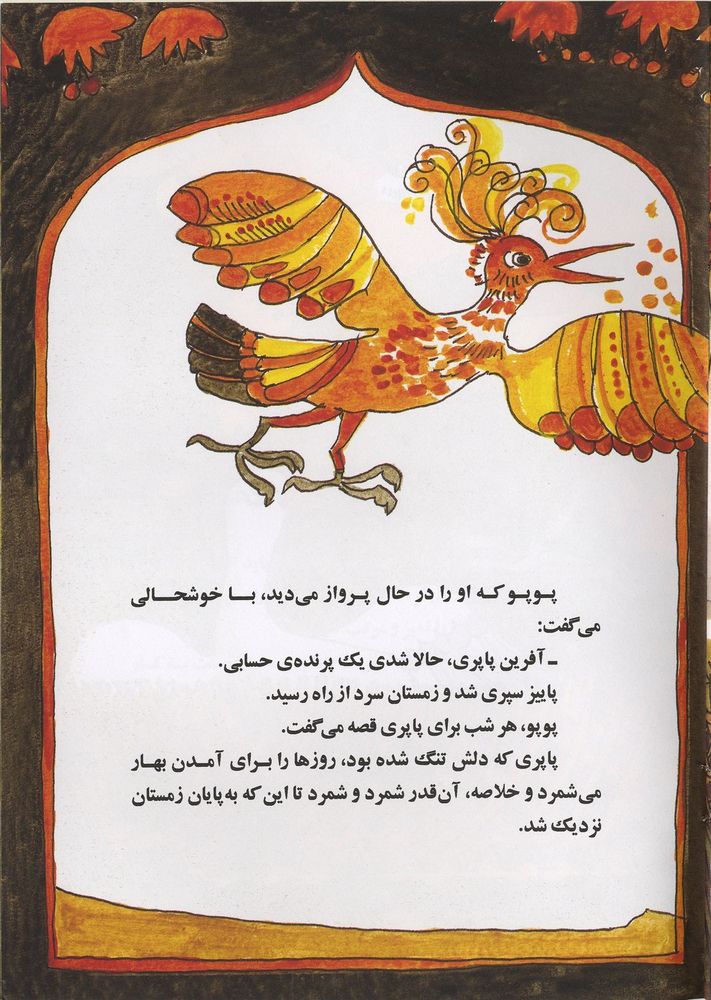 پوپو که او را در حال پرواز می‌دید، با خوشحالی
می‌گفت:
ـ آفرین پاپری، حالا شدی یک پرنده‌ی حسابی.
پاییز سپری شد و زمستان سرد از راه رسید.
پوپو، هر شب برای پاپری قصه می‌گفت.
پاپری که دلش تنگ شده بود، روزها را برای آمدن بهار
می‌شمرد و خلاصه، آن‌قدر شمرد و شمرد تا این که به‌پایان زمستان
نزدیک شد.